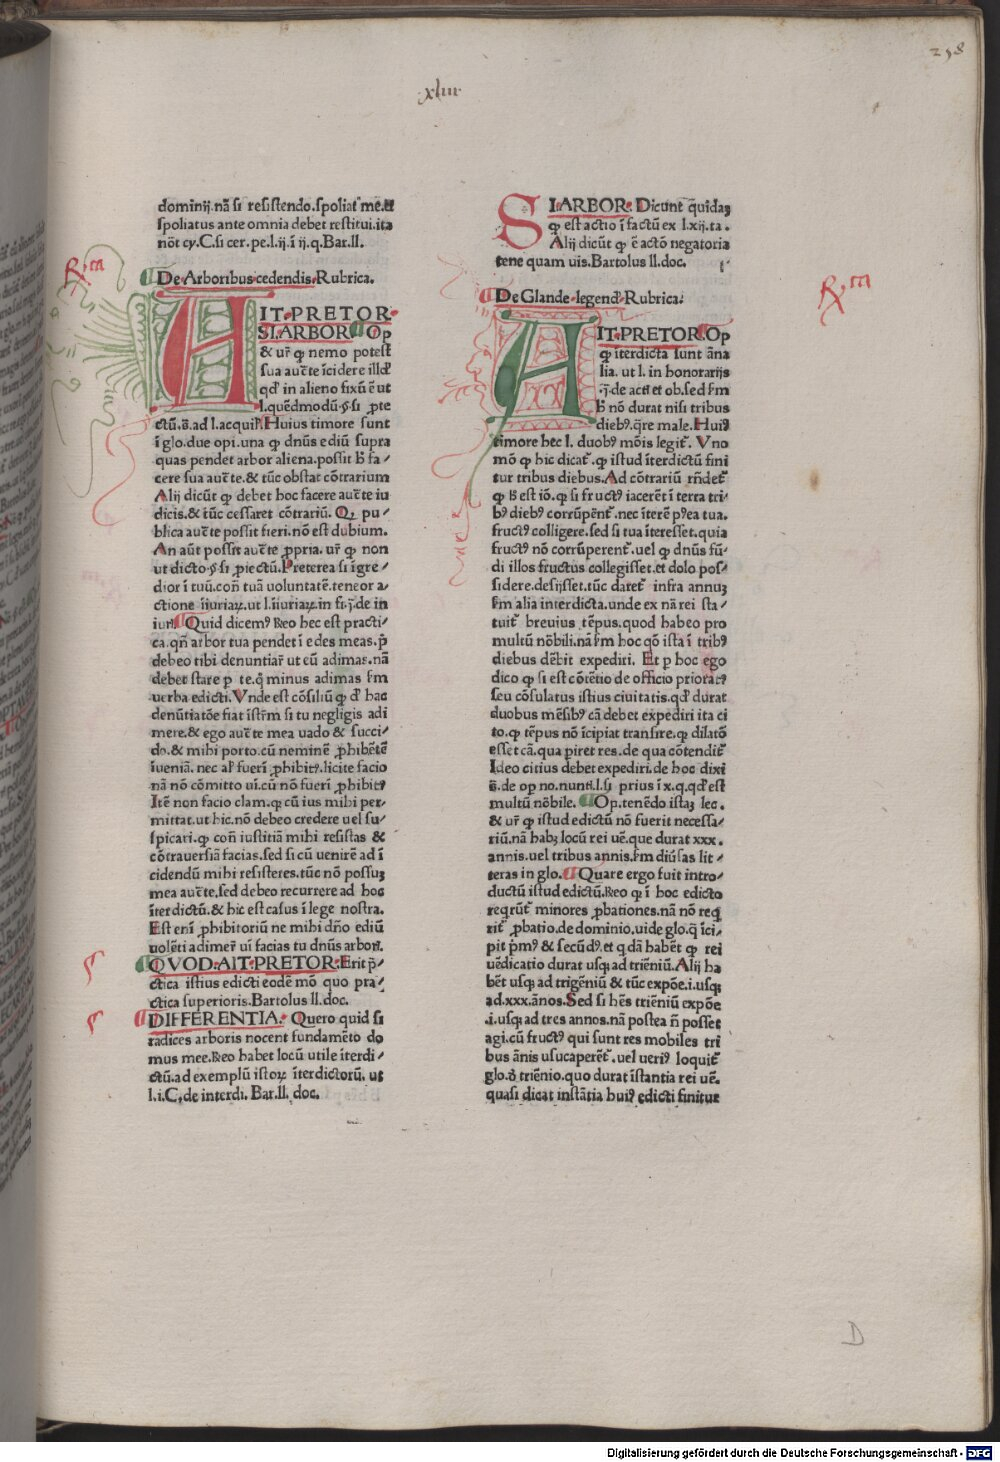 298
xliiii
dominij.nā si resistendo.spoliat᷒ me.&
spoliatus ante omnia debet restitui.ita
nōt cy.C.si cer.pe.l.ij.ī ij.q.Bar.ll.
De Arboribus cedendis.Rubrica.
AIT.PRETOR.
SI.ARBOR. Op
& ur̄ ꝙ nemo potest
sua auc̄te īcidere illd̄
qd̄ in alieno fixū ē ut
l.quēdmodū.§.si ꝓte
ctū.s̄.ad l.acquil̄.Huius timore sunt
ī glo.due opi.una ꝙ dn̄us ediū supra
quas pendet arbor aliena.possit h̄ fa⸗
cere sua auc̄te.& tūc obstat cōtrarium
Alij dicūt ꝙ debet hoc facere auc̄te iu
dicis.& tūc cessaret cōtrariū. Q, pu⸗
blica auc̄te possit fieri.nō est dubium.
An aūt possit auc̄te ꝓpria. ur̄ ꝙ non
ut dicto.§.si ꝓiectū.Preterea si īgre⸗
dior ī tuū.con̄ tuā uoluntatē.teneor a⸗
ctione īiuriaꝝ.ut l.īiuriaꝝ.in fi.j̄.de in
iur̄. Quid dicem᷒ Reo hec est practi⸗
ca.qn̄ arbor tua pendet ī edes meas.p̄
debeo tibi denuntiar̄ ut eū adimas.nā
debet stare p te.q̄ minus adimas s̄m
uerba edicti.Vnde est cōsiliū ꝙ d̄ hac
denūtiatōe fiat īstr̄m si tu negligis adi
mere.& ego auc̄te mea uado & succi⸗
do.& mihi porto.cū neminē ꝓhibētē
īueniā. nec al̄ fueri ꝓhibit᷒.licite facio
nā nō cōmitto uī.cū nō fueri ꝓhibit᷒
Itē non facio clam.ꝙ cū ius mihi per⸗
mittat.ut hic.nō debeo credere uel su⸗
spicari.ꝙ con̄ iustitiā mihi resistas &
cōtrauersiā facias.sed si cū uenirē ad ī
cidendū mihi resisteres.tūc nō possuꝫ
mea auc̄te.sed debeo recurrere ad hoc
īterdictū.& hic est casus ī lege nostra.
Est eni ꝓhibitoriū ne mihi dn̄o ediū
uolēti adimer̄ ui facias tu dn̄us arbor̄.
QVOD.AIT.PRETOR.Erit p̄⸗
ctica istius edicti eodē mō quo pra⸗
ctica superioris.Bartolus ll.doc.
DIFFERENTIA. Quero quid si
radices arboris nocent fundamēto do
mus mee.Reo habet locū utile īterdi⸗
ctū.ad exemplū istoꝝ īterdictorū. ut
l.i.C.de interdi. Bar.ll. doc.
SI.ARBOR. Dicunt q̄uidaꝫ
ꝙ est actio ī factū ex l.xij.ta.
Alij dicūt ꝙ ē actō negatoria
tene quam uis.Bartolus ll.doc.
De Glande legend̄.Rubrica.
AIT.PRETOR.Op
ꝙ īterdicta sunt āna
lia. ut l. in honorarijs
.j̄.de acti et ob.sed s̄m
h̄ nō durat nisi tribus
dieb᷒.q̄re male.Hui᷒
timore hec l. duob᷒ mōis legit̄. Vno
mō ꝙ hic dicat̄.ꝙ istud īterdictū fini
tur tribus diebus.Ad cōtrariū rn̄det̄
ꝙ h̄ est iō.ꝙ si fruct᷒ iacerēt ī terra tri⸗
b᷒ dieb᷒ corrūpēnt̄. nec īterē p᷒ea tua.
fruct᷒ colligere.sed si tua īteresset.quia
fruct᷒ nō corrūperent̄.uel ꝙ dn̄us fū⸗
di illos fructus collegisset.et dolo pos⸗
sidere.desijsset.tūc daret̄ infra annuꝫ
s̄m alia interdicta.unde ex nā rei sta⸗
tuit̄ breuius tēpus.quod habeo pro
multū nōbili.nā s̄m hoc qō ista ī trib᷒
diebus dēbit expediri. Et p hoc ego
dico ꝙ si est cōtētio de officio prioratꝰ
seu cōsulatus istius ciuitatis.qd̄ durat
duobus mēsib᷒ cā debet expediri ita ci
to.ꝙ tēpus nō īcipiat transire.ꝙ dilatō
esset cā.qua piret res.de qua cōtendit̄
Ideo citius debet expediri.de hoc dixi
s̄.de op no.nunti.l.si prius ī x.q.qd̄ est
multū nōbile. Op.tenēdo istaꝫ lec.
& ur̄ ꝙ istud edictū nō fuerit necessa⸗
riū.nā habꝫ locū rei uē.que durat xxx.
annis.uel tribus annis.s̄m diūsas lit⸗
teras in glo. Quare ergo fuit intro⸗
ductū istud edictū.Reo ꝙ ī hoc edicto
reqrūt̄ minores ꝓbationes.nā nō req̄
rit̄ ꝓbatio.de dominio.uide glo.q̄ īci⸗
pit p̄m᷒ & secūd᷒.et q̄dā habēt ꝙ rei
uēdicatio durat usqꝫ ad triēniū.Alij ha
bēt usqꝫ ad trigēniū & tūc expōe.i.usqꝫ
ad.xxx.ānos.Sed si hēs triēniū expōe
.i.usqꝫ ad tres annos.nā postea n̄ posset
agi.cū fruct᷒ qui sunt res mobiles tri
bus ānis usucaperēt̄.uel ueri᷒ loquit̄
glo.d̄ triēnio.quo durat īstantia rei uē.
quasi dicat instātia hui᷒ edicti finitur
D
Digitalisierung gefördert durch die Deutsche Forschungsgemeinschaft - DFG